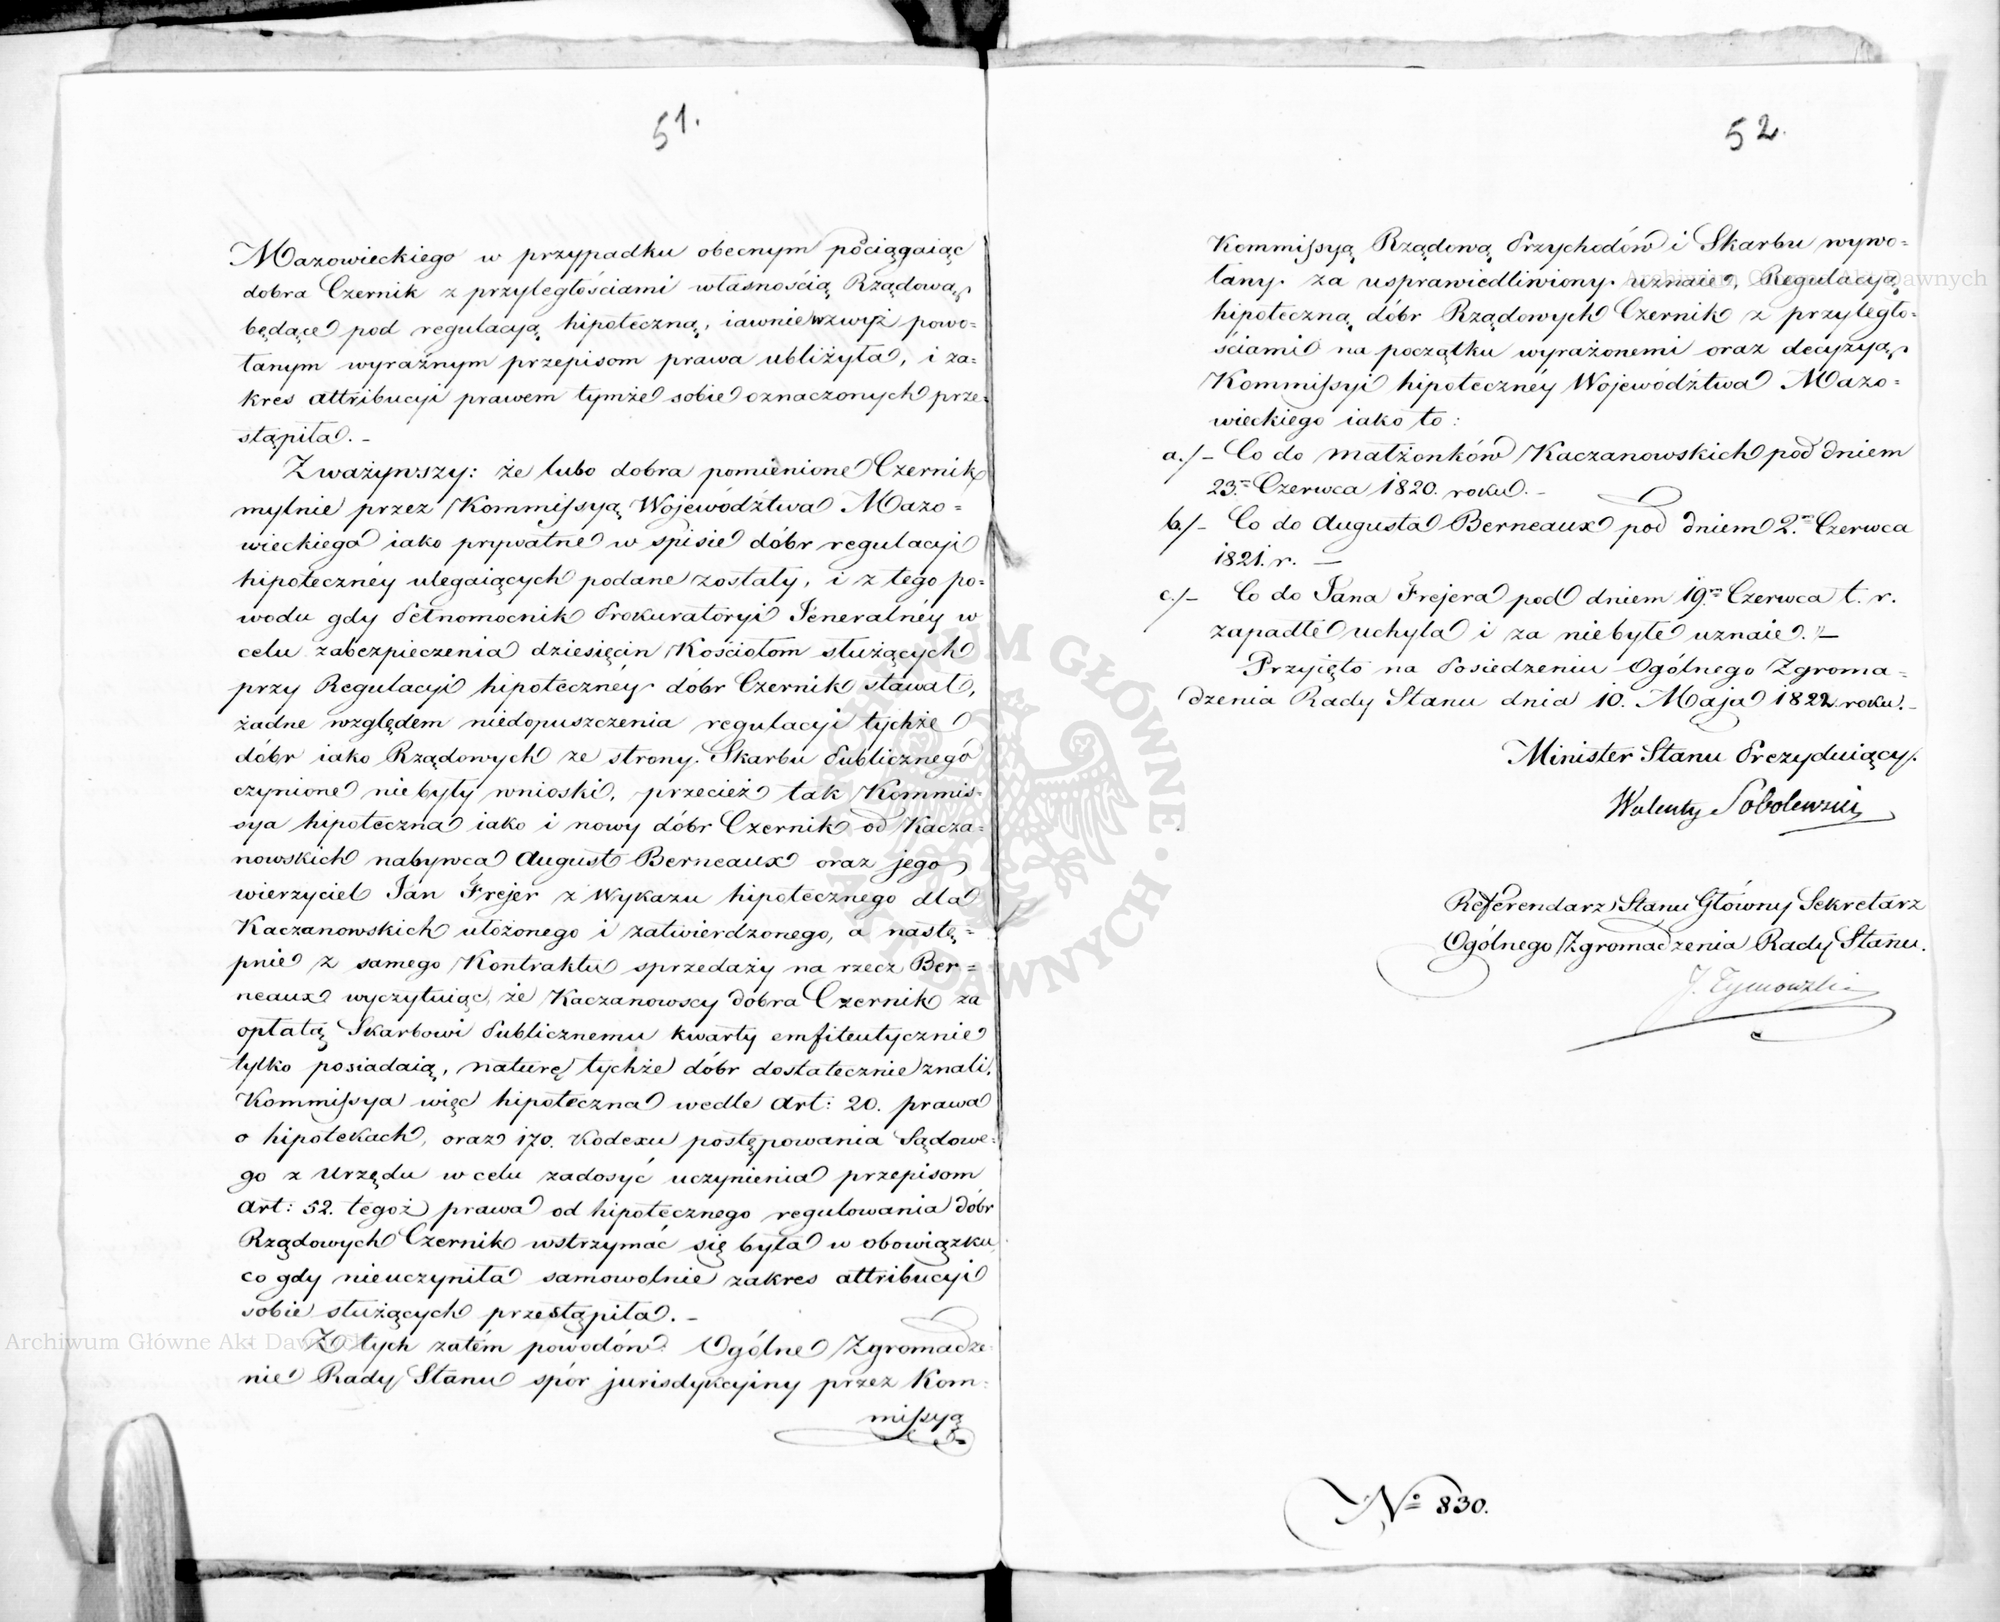 51.
Mazowieckiego w przypadku obecnym pociągaiąc
dobra Czernik z przyległościami własnością Rządową
będące pod regulacyą hipoteczną, iawnie wzwyż powo-
łanym wyraźnym przepisom prawa ubliżyła, i za-
kres attribucyi prawem tymże sobie oznaczonych prze-
stąpiła. -
Zważywszy: że lubo dobra pomienione Czernik
mylnie przez Kommissyą Województwa Mazo-
wieckiego iako prywatne w spisie dóbr regulacyi
hipotecznéy ulegaiących podane zostały, i z tego po-
wodu gdy Pełnomocnik Prokuratoryi Jeneralnéy w
celu zabezpieczenia dziesięcin Kościołom służących
przy Regulacyi hipotecznéy dóbr Czernik stawał,
żadne względem niedopuszczenia regulacyi tychże
dóbr iako Rządowych ze strony Skarbu Publicznego
czynione nie były wnioski, przecież tak Kommis-
sya hipoteczna iako i nowy dóbr Czernik od Kacza-
nowskich nabywca August Berneaux oraz jego
wierzyciel Jan Frejer z Wykazu hipotecznego dla
Kaczanowskich ułożonego i zatwierdzonego, a nastę-
pnie z samego Kontraktu sprzedaży na rzecz Ber-
neaux wyczytuiąc, że Kaczanowscy dobra Czernik za
opłatą Skarbowi Publicznemu kwarty emfiteutycznie
tylko posiadaią, naturę tychże dóbr dostatecznie znali.
Kommissya więc hipoteczna wedle Art: 20. prawa
o hipotekach, oraz 170. Kodexu postępowania Sądowe-
go z Urzędu w celu zadosyć uczynienia przepisom
Art: 52. tegoż prawa od hipotecznego regulowania dóbr
Rządowych Czernik wstrzymać się była w obowiązku,
co gdy nieuczyniła samowolnie zakres attribucyi
sobie służących przestąpiła. -
Z tych zatém powodów Ogólne Zgromadze-
nie Rady Stanu spór jurisdykcyiny przez Kom-
missyą
52.
Kommissyą Rządową Przychodów i Skarbu wywo-
łany za usprawiedliwiony uznaie, Regulacyą
hipoteczną dóbr Rządowych Czernik z przyległo-
ściami na początku wyrażonemi oraz decyzyą
Kommissyi hipotecznéy Województwa Mazo-
wieckiego iako to:
a./- Co do małżonków Kaczanowskich pod dniem
23. Czerwca 1820. roku. -
b./- Co do Augusta Berneaux pod dniem 2. Czerwca
1821. r. -
c./- Co do Jana Frejera pod dniem 19. Czerwca t. r.
zapadłe uchyla i za niebyłe uznaie. -
Przyięto na Posiedzeniu Ogólnego Zgroma-
dzenia Rady Stanu dnia 10. Maja 1822 roku. -
Minister Stanu Prezyduiący.
Walenty Sobolewski
Referendarz Stanu Główny Sekretarz
Ogólnego Zgromadzenia Rady Stanu.
J. Tymowski
No 830.
Archiwum Główne Akt Dawnych
Archiwum Główne Akt Dawnych
ARCHIWUM GŁÓWNE · AKT DAWNYCH ·